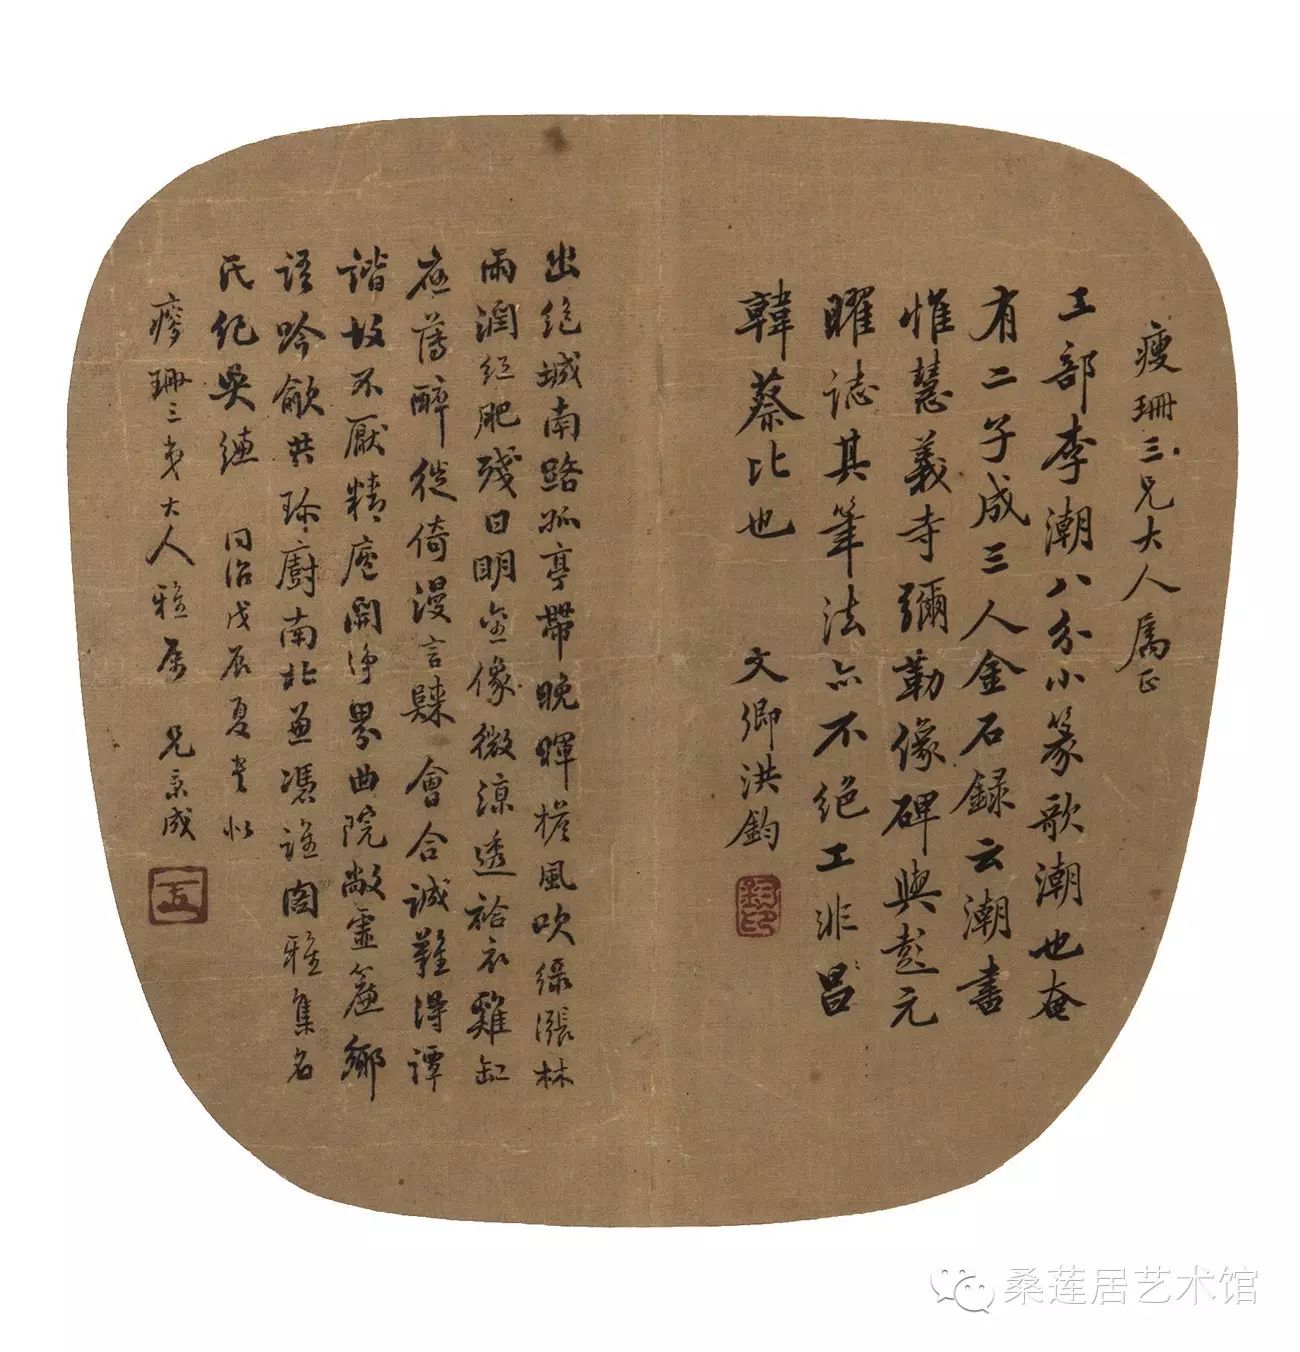 瘦珊三兄大人属正
工部李潮八分小篆歌潮也奄
有二子成三人金石録云潮書
惟慧義寺彌勒像碑與彭元
曜誌其筆法亦不絕工非
韓蔡比也
文卿洪鈞
出絕城南路孤亭帶晚暉 風吹綠漲林
雨潤紅肥殘日明金像微涼透袷衣雞缸
應薄醉徙倚漫言 會合誠難得譚
諧故不厭精廬開淨界曲院敞靈簾鄉
語吟龢共珍廚南北宜憑誰圖雅集名
氏紀吳縑 同治戊辰夏
瘦珊三 大人雅屬 成
桑莲居艺术馆